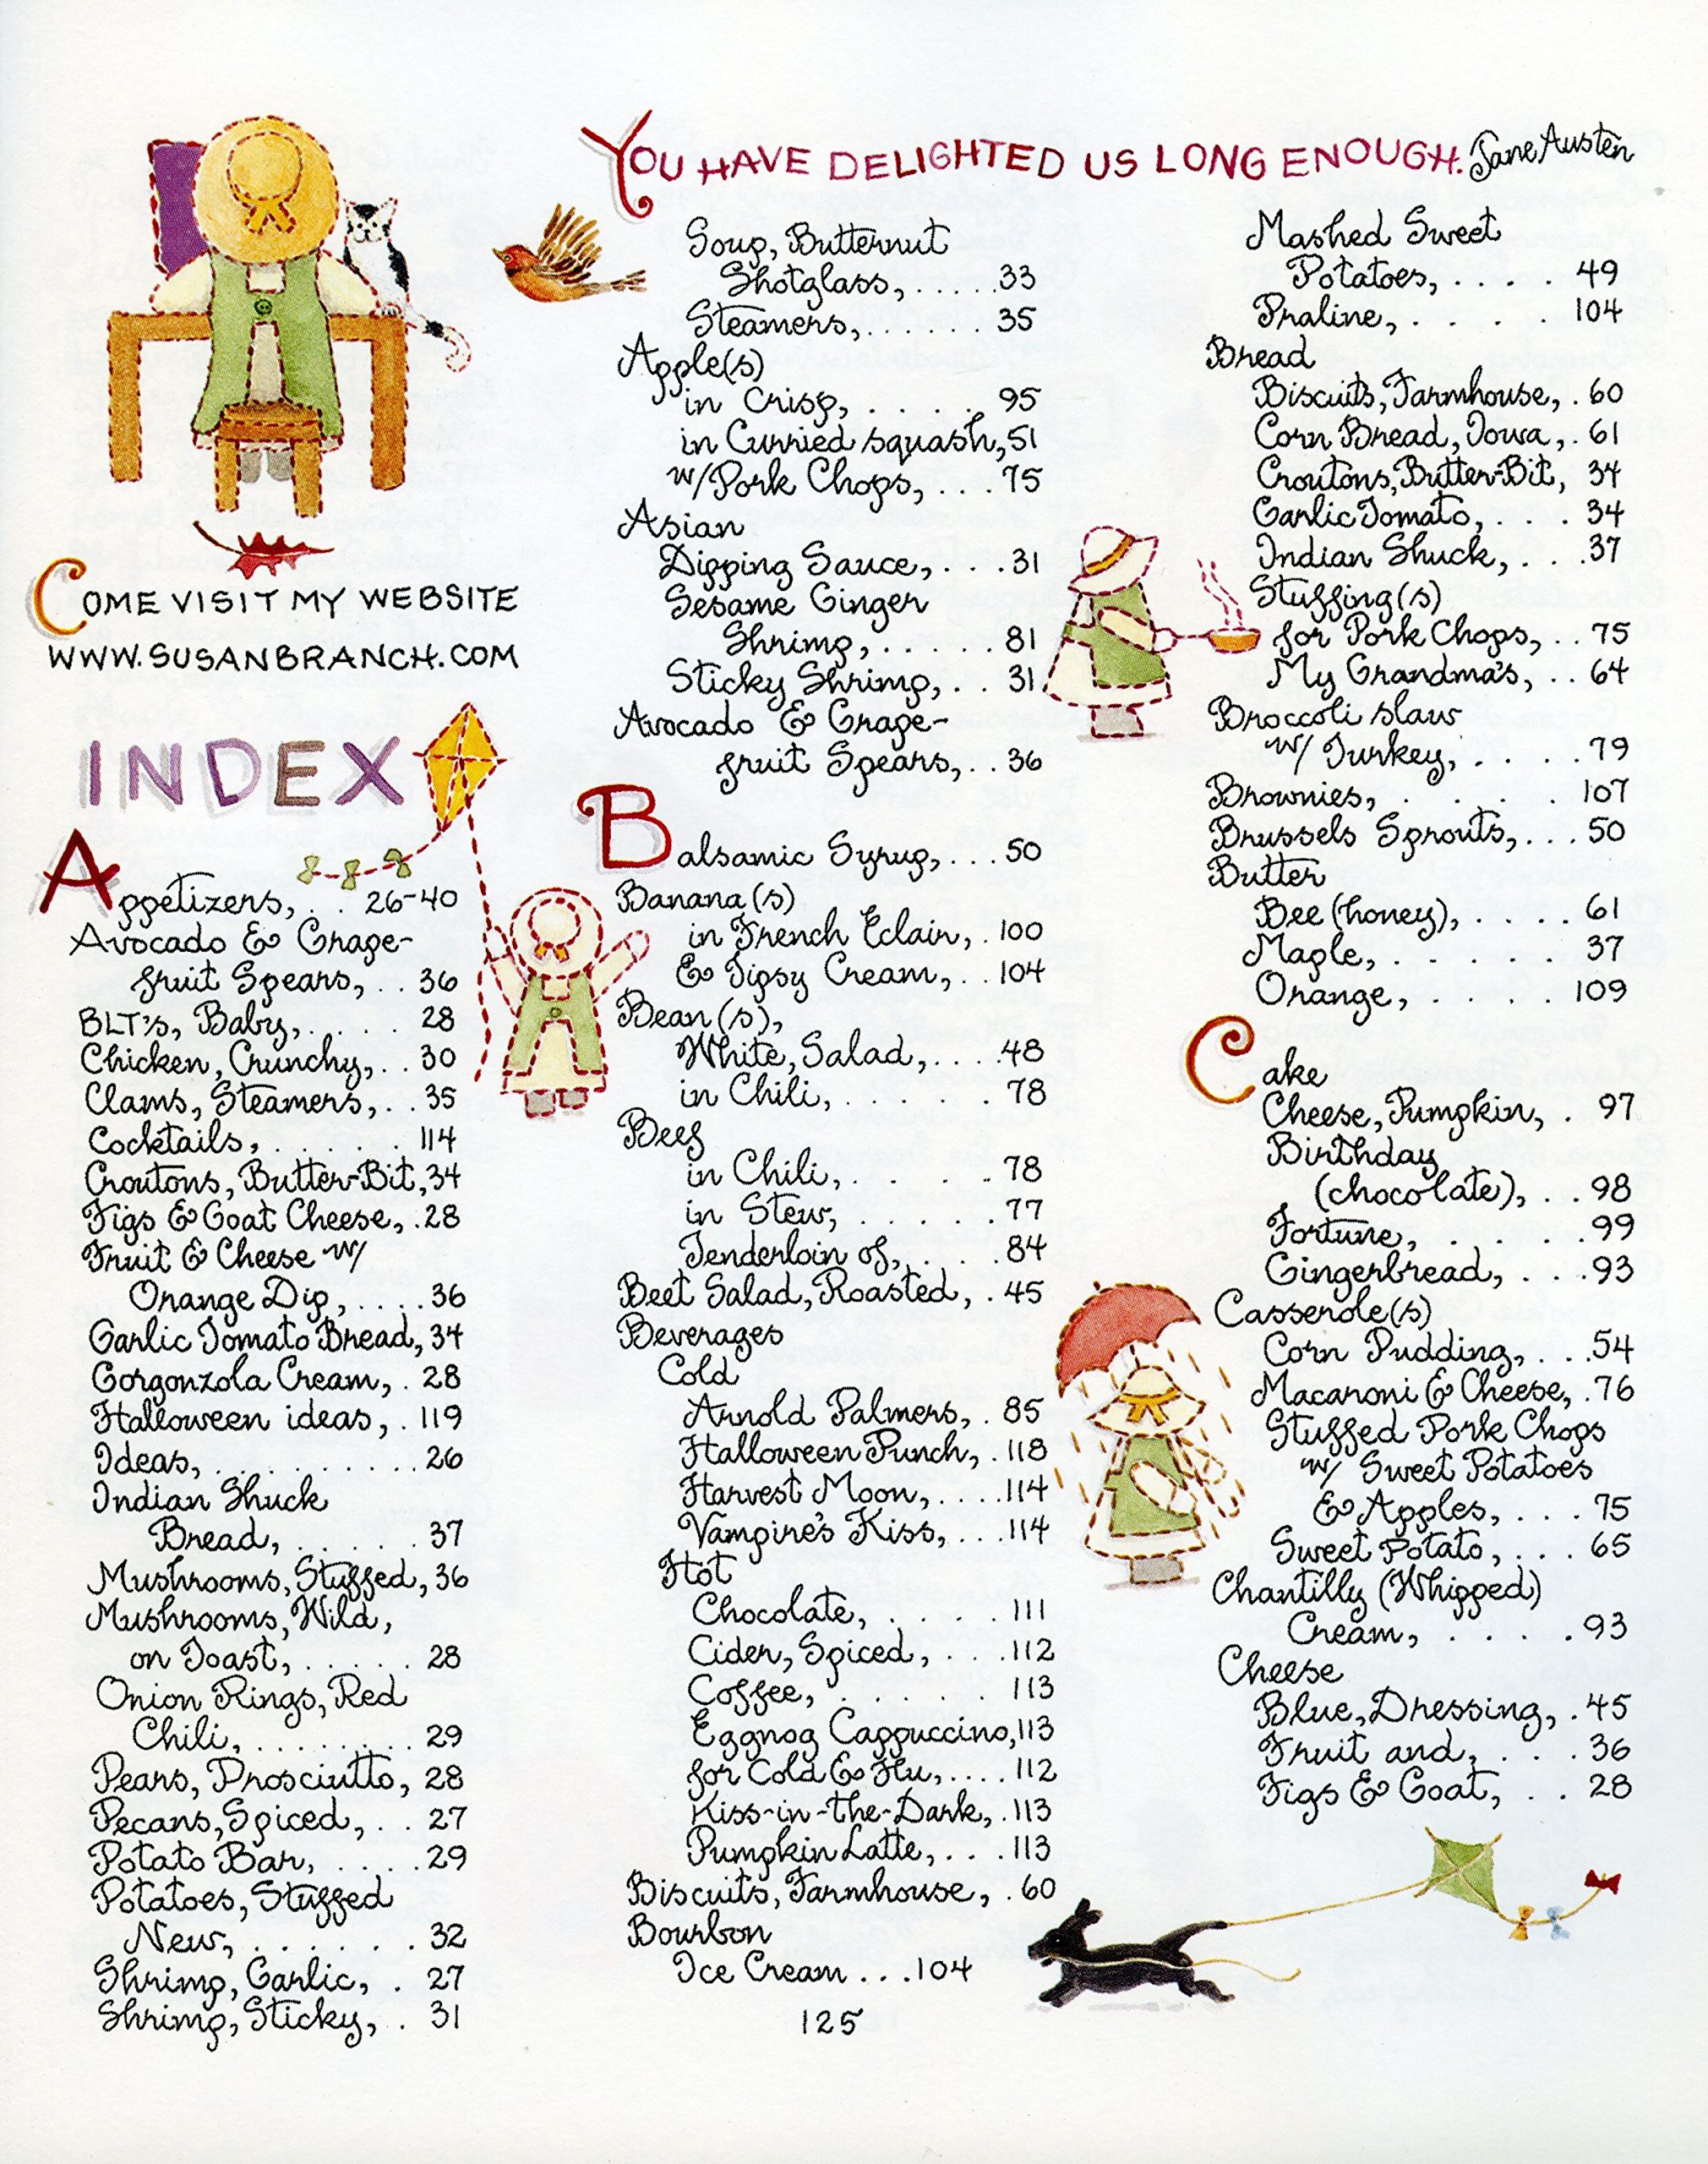 YOU HAVE DELIGHTED US LONG ENOUGH. Jane Austen
COME VISIT MY WEBSITE
WWW.SUSANBRANCH.COM
INDEX
Appetizers, . . 26-40
Avocado & Grape-
fruit Spears, . . 36
BLT's, Baby, . . . . 28
Chicken, Crunchy, . . 30
Clams, Steamers, . . 35
Cocktails, . . . . . . 114
Croutons, Butter-Bit, 34
Figs & Goat Cheese, . 28
Fruit & Cheese w/
Orange Dip, . . . . 36
Garlic Tomato Bread, 34
Gorgonzola Cream, . 28
Halloween ideas, . 119
Ideas, . . . . . . . . . . 26
Indian Shuck
Bread, . . . . . . 37
Mushrooms, Stuffed, 36
Mushrooms, Wild,
on Toast, . . . . . 28
Onion Rings, Red
Chili, . . . . . . . . 29
Pears, Prosciutto, 28
Pecans, Spiced, . . 27
Potato Bar, . . . . . 29
Potatoes, Stuffed
New, . . . . . . . 32
Shrimp, Garlic, . 27
Shrimp, Sticky, . 31
Soup, Butternut
Shotglass, . . . . . 33
Steamers, . . . . . . 35
Apple(s)
in Crisp, . . . . . 95
in Curried squash, 51
w/Pork Chops, . . . 75
Asian
Dipping Sauce, . . . 31
Sesame Ginger
Shrimp, . . . . . 81
Sticky Shrimp, . . 31
Avocado & Grape-
fruit Spears, . . 36
Balsamic Syrup, . . . 50
Banana(s)
in French Eclair, . 100
& Tipsy Cream, . . 104
Bean(s),
White, Salad, . . . . 48
in Chili, . . . . . . 78
Beef
in Chili, . . . . . 78
in Stew, . . . . . . 77
Tenderloin of, . . . . 84
Beet Salad, Roasted, . 45
Beverages
Cold
Arnold Palmers, . 85
Halloween Punch, . 118
Harvest Moon, . . . . 114
Vampire's Kiss, . . . 114
Hot
Chocolate, . . . . 111
Cider, Spiced, . . . 112
Coffee, . . . . . . 113
Eggnog Cappuccino, 113
for Cold & Flu, . . . . 112
Kiss-in-the-Dark, . 113
Pumpkin Latte, . . . 113
Biscuits, Farmhouse, . 60
Bourbon
Ice Cream . . . 104
Mashed Sweet
Potatoes, . . . . 49
Praline, . . . . 104
Bread
Biscuits, Farmhouse, . 60
Corn Bread, Iowa, . 61
Croutons, Butter-Bit, 34
Garlic Tomato, . . . 34
Indian Shuck, . . . 37
Stuffing(s)
for Pork Chops, . . 75
My Grandma's, . . 64
Broccoli slaw
w/ Turkey, . . . . . 79
Brownies, . . . . 107
Brussels Sprouts, . . . 50
Butter
Bee (honey), . . . . 61
Maple, . . . . . . 37
Orange, . . . . 109
Cake
Cheese, Pumpkin, . 97
Birthday
(chocolate), . . 98
Fortune, . . . . . 99
Gingerbread, . . . 93
Casserole(s)
Corn Pudding, . . . 54
Macaroni & Cheese, . 76
Stuffed Pork Chops
w/ Sweet Potatoes
& Apples, . . . 75
Sweet Potato, . . . 65
Chantilly (Whipped)
Cream, . . . . . 93
Cheese
Blue, Dressing, . 45
Fruit and, . . . 36
Figs & Goat, . . 28
125